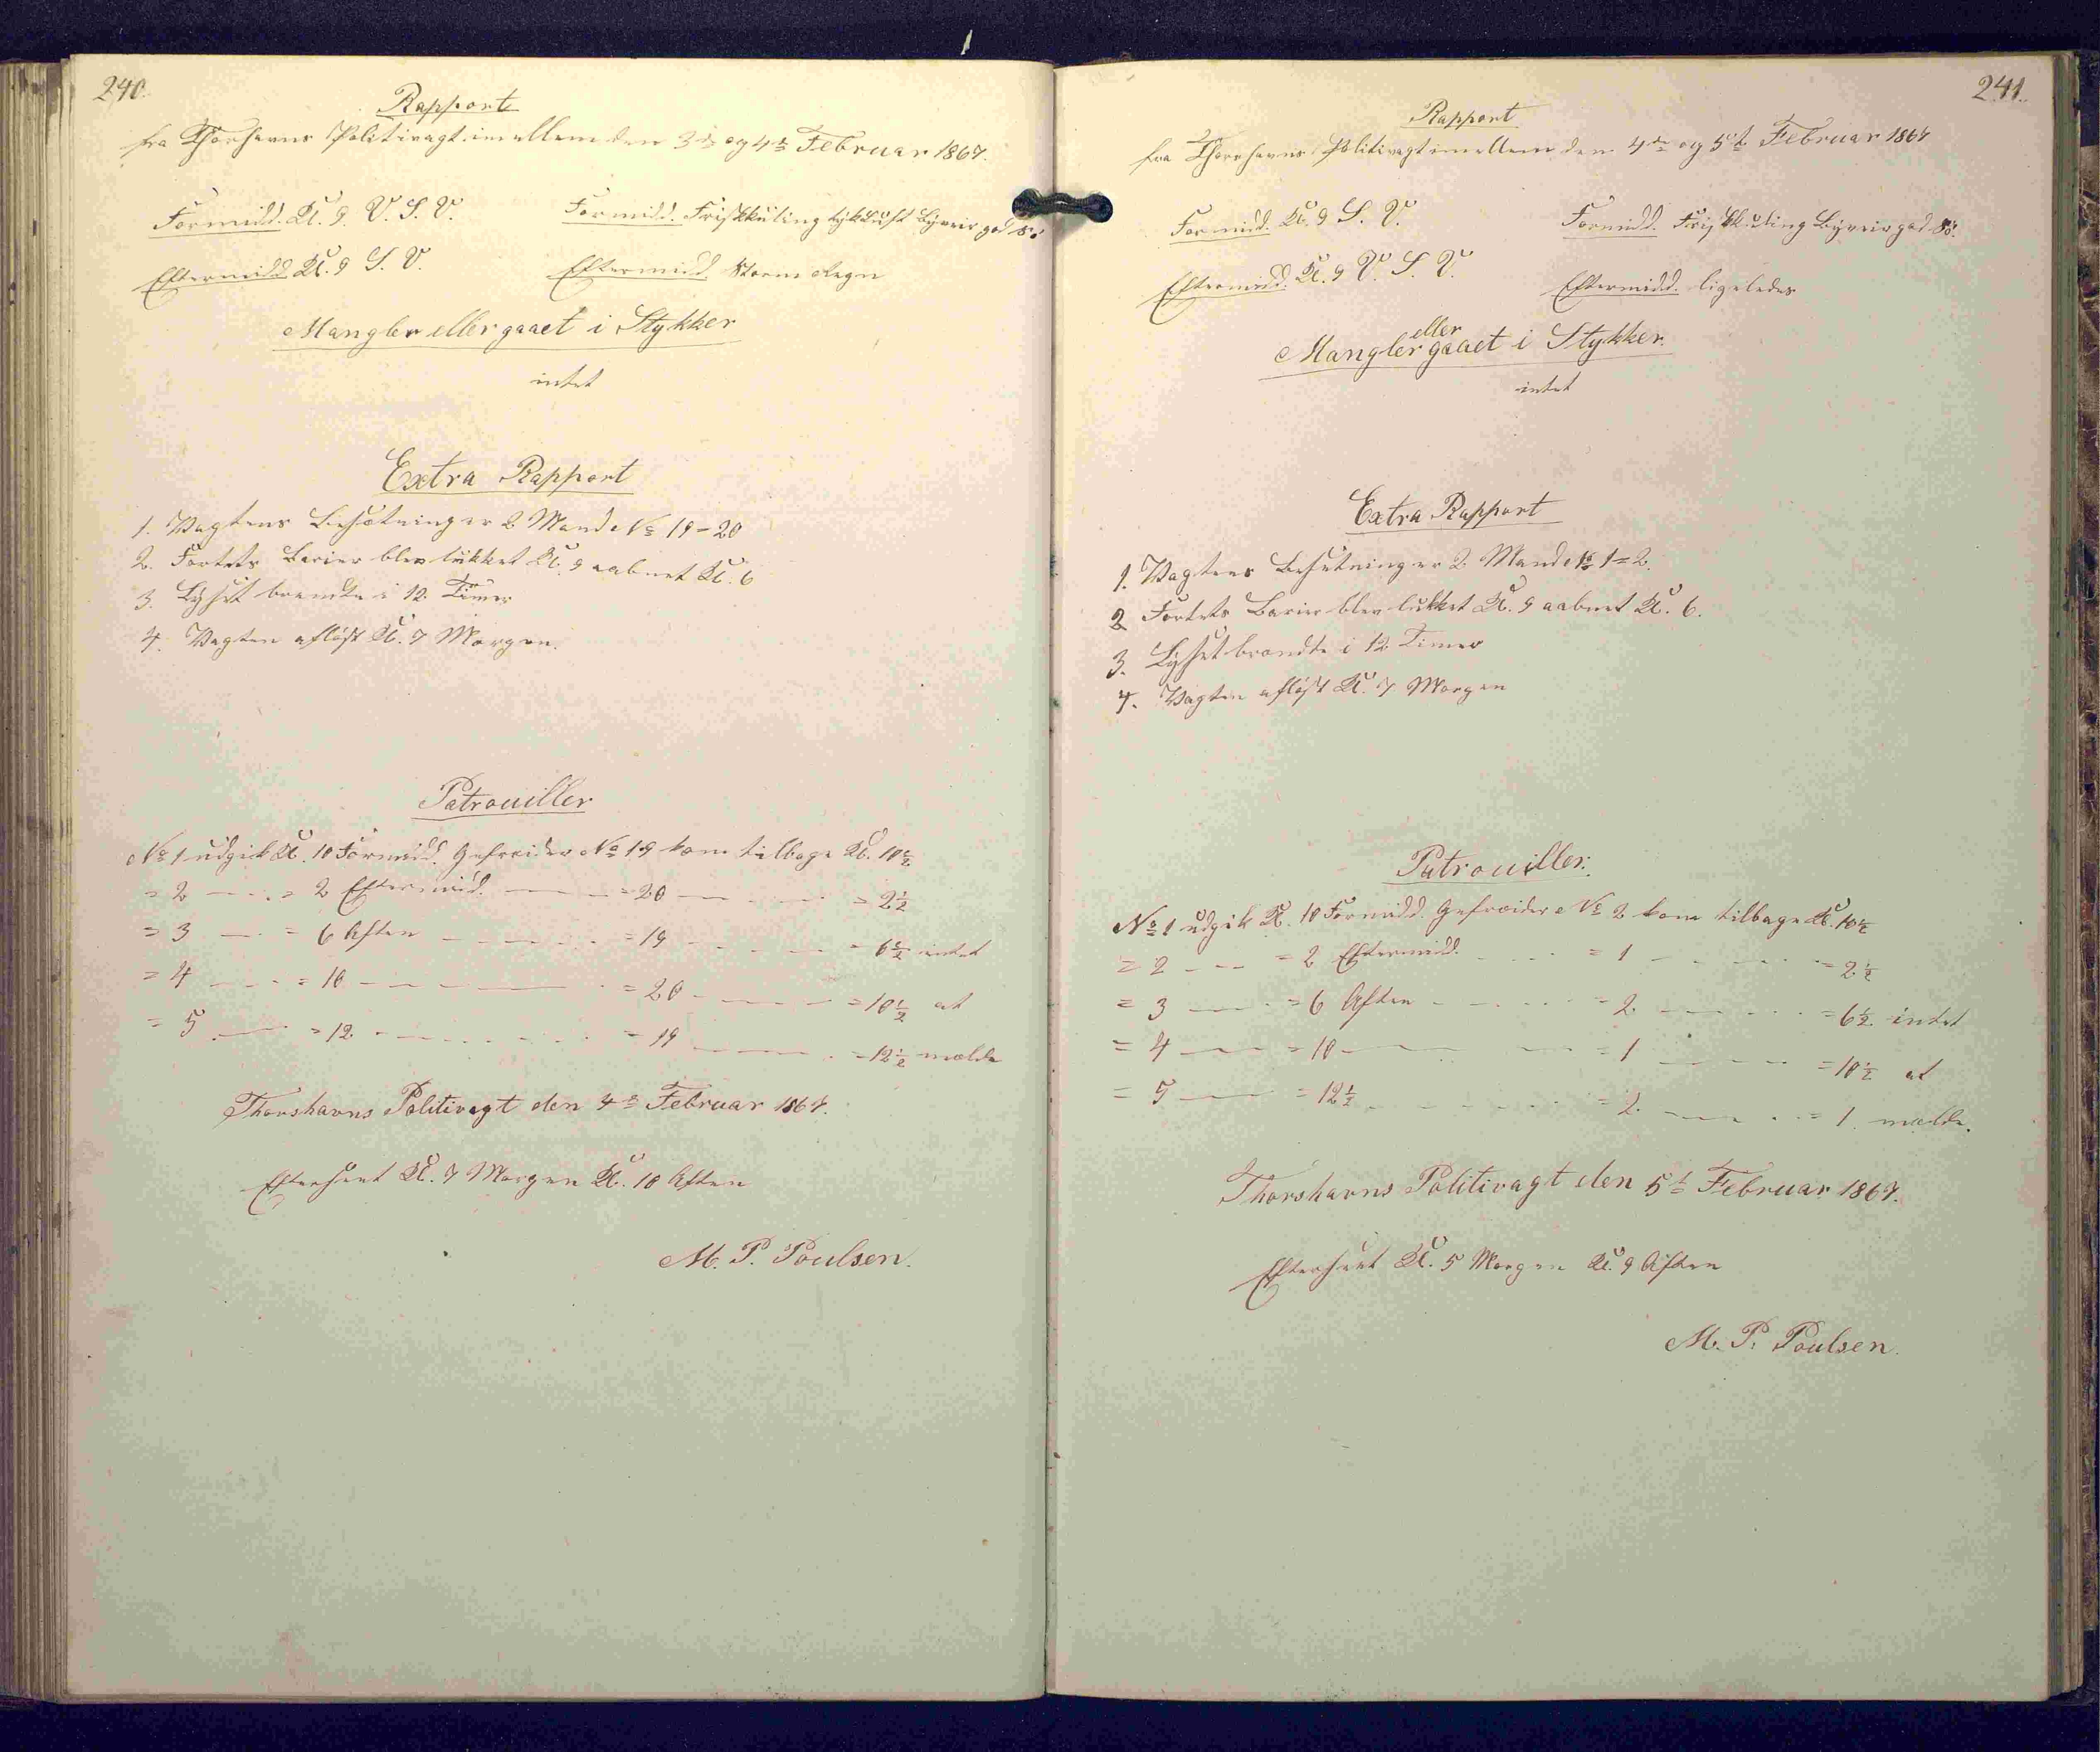 240.
Rapport
fra Thorshavns Politivagt imellem den 3de og 4de Februar 1867.
Formidd. Kl. 9. V. S. V.
Formidd. Friskkuling tyk Luft Byveir god Sö
Eftermidd Kl. 9 S. V.
Eftermidd. Storm Regn
Mangler eller gaaet i Stykker
intet
Extra Rapport
1. Vagtens Besætning er 2 Mand No 19 = 20
2. Fortets Barier blev lukket Kl. 9 aabnet Kl. 6
3. Lyset brændte i 12 Timer
4. Vagten aflöst Kl. 7 Morgen.
Patrouiller
No 1 udgik Kl. 10 Formidd. Gefreider No 19 kom tilbage Kl. 10½
= 2 — = 2 Eftermidd. — = 20 — = 2½
= 3 — = 6 Aften — = 19 — = 6½ intet
= 4 — = 10 — = 20 — = 10½ at
= 5 — = 12 — = 19 — = 12½ melde
Thorshavns Politivagt den 4de Februar 1867.
Efterseet Kl. 7 Morgen Kl. 10 Aften
M. P. Poulsen.
241.
Rapport
fra Thorshavns Politivagt imellem den 4de og 5te Februar 1867
Formidd. Kl. 9 S. V.
Formidd. Friskkuling Byveir god Sö.
Eftermidd. Kl. 9 V. S. V.
Eftermidd. ligeledes
Mangler eller gaaet i Stykker.
intet
Extra Rapport
1. Vagtens Besætning er 2 Mand No 1 = 2.
2 Fortets Barier blev lukket Kl. 9 aabnet Kl. 6.
3. Lyset brændte i 12 Timer
4. Vagten aflöst Kl. 7 Morgen
Patrouiller.
No 1 udgik Kl. 10 Formidd. Gefreider No 2 kom tilbage Kl. 10½
= 2 — = 2 Eftermidd. — = 1 — = 2½
= 3 — = 6 Aften — = 2. — = 6½ intet
= 4 — = 10 — = 1 — = 10½ at
= 5 — = 12½ — = 2. — = 1. melde.
Thorshavns Politivagt den 5te Februar 1867.
Efterseet Kl. 5 Morgen Kl. 9 Aften
M. P. Poulsen.